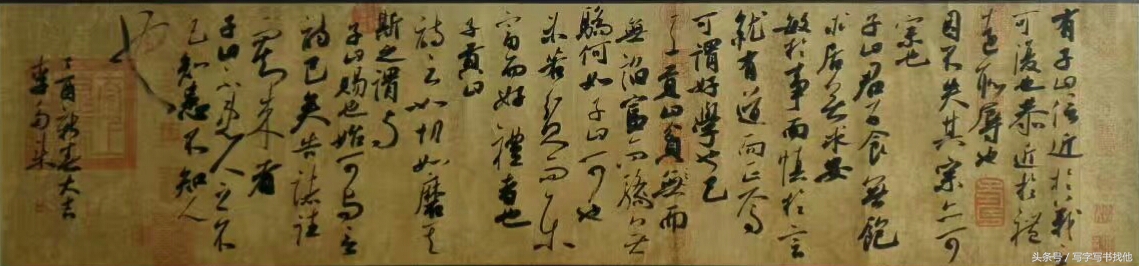 有子曰信近於義言
可復也恭近於禮
遠恥辱也
因不失其宗亦可
宗也
子曰君子食無飽
求居無求安
敏於事而慎於言
就有道而正焉
可謂好學也已
子貢曰貧無而
無諂富而驕無
驕何如子曰可也
未若貧而樂
富而好禮者也
子貢曰
詩云如切如磨其
斯之謂與
子曰賜也始可與言
詩已矣告諸往
而知來者
子曰不患人之不
己知患不知人
也
丁酉新春大吉
李
头条号／写字写书找他